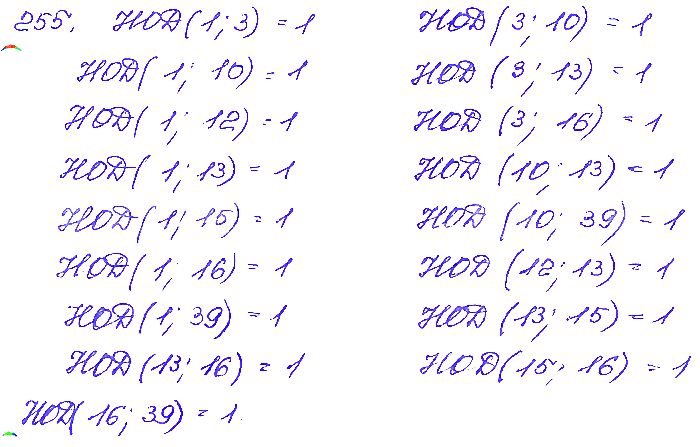 255. НОД(1; 3) = 1
НОД(1; 10) = 1
НОД(1; 12) = 1
НОД(1; 13) = 1
НОД(1; 15) = 1
НОД(1; 16) = 1
НОД(1; 39) = 1
НОД(13; 16) = 1
НОД(16; 39) = 1.
НОД(3; 10) = 1
НОД(3; 13) = 1
НОД(3; 16) = 1
НОД(10; 13) = 1
НОД(10; 39) = 1
НОД(12; 13) = 1
НОД(13; 15) = 1
НОД(15; 16) = 1